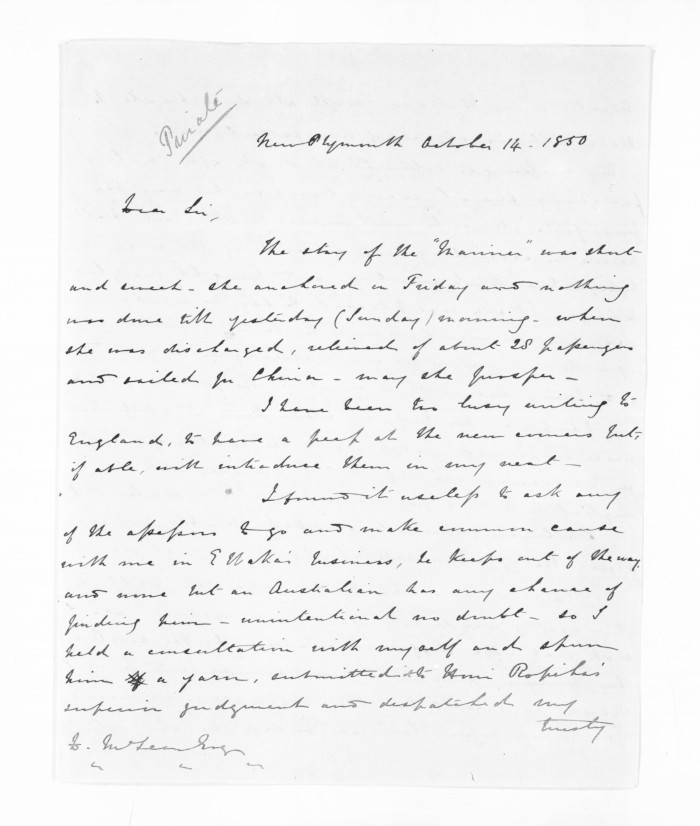 Private
New Plymouth October 14 - 1850
Dear Sir,
The stay of the "Mariner" was short
and sweet - she anchored on Friday and nothing
was done till yesterday (Sunday) morning - when
she was discharged, relieved of about 28 passengers
and sailed for China - may she prosper -
I have been too busy writing to
England, to have a peep at the new comers but,
if able, will introduce them in my next -
I found it useless to ask any
of the assessors to go and make common cause
with me in E Waka's business, he keeps out of the way
and none but an Australian has any chance of
finding him - unintentional no doubt - so I
held a consultation with myself and spun
him a yarn, submitted it to Honi Ropiha's
superior judgment and despatched my
trusty
D. McLean Esq